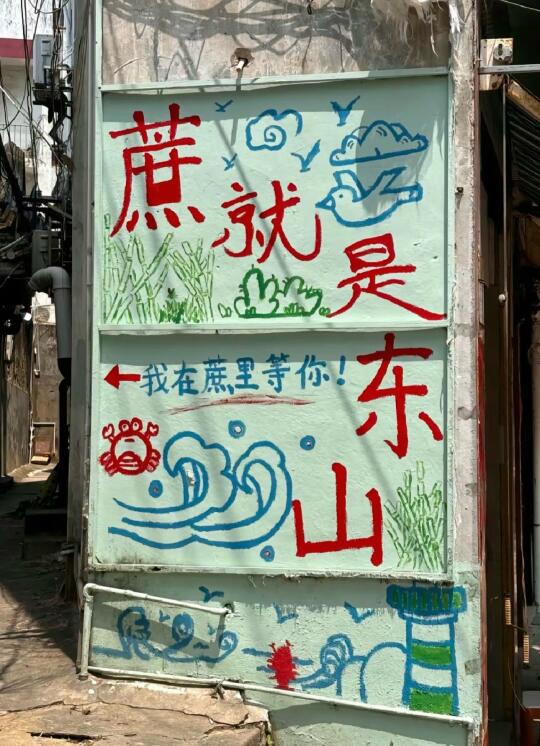 蔗就是东山
我在蔗里等你！